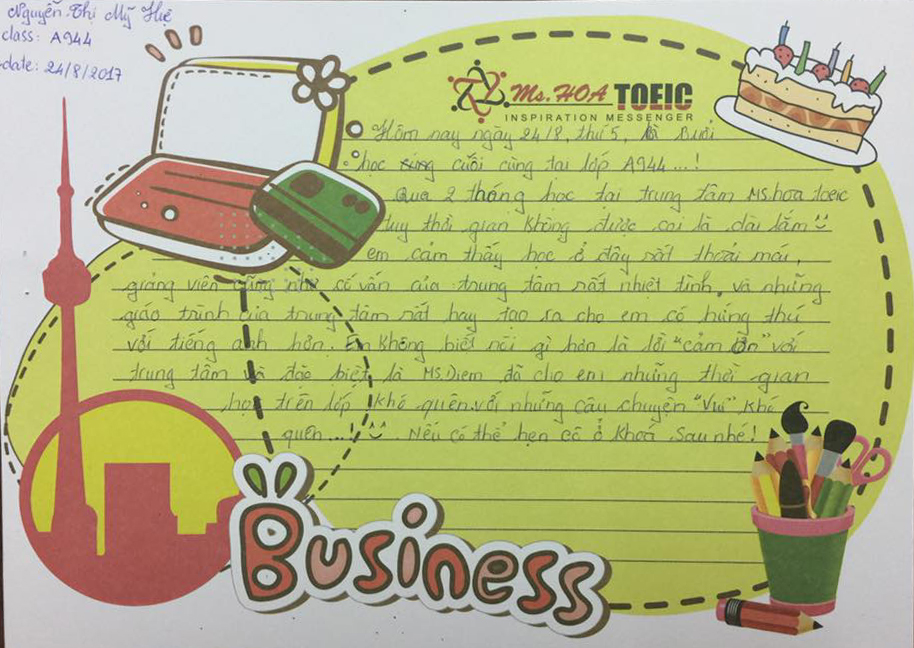 Nguyễn Thị Mỹ Huệ
class: A944
date: 24/8/2017
Ms.HOA TOEIC
INSPIRATION MESSENGER
Hôm nay ngày 24/8, thứ 5, là Buổi
học cuối cùng tại lớp A944...!
Qua 2 tháng học tại trung tâm MS.hoa toeic
tuy thời gian không được coi là dài lắm
em cảm thấy học ở đây rất thoải mái,
giảng viên cũng như cố vấn của trung tâm rất nhiệt tình, và những
giáo trình của trung tâm rất hay tạo ra cho em có hứng thú
với tiếng anh hơn. Em không biết nói gì hơn là lời "cảm ơn" với
trung tâm và đặc biệt là MS.Diem đã cho em những thời gian
học trên lớp khó quên với những câu chuyện "Vui" khó
quên...! Nếu có thể hẹn cô ở khoá sau nhé!
Business